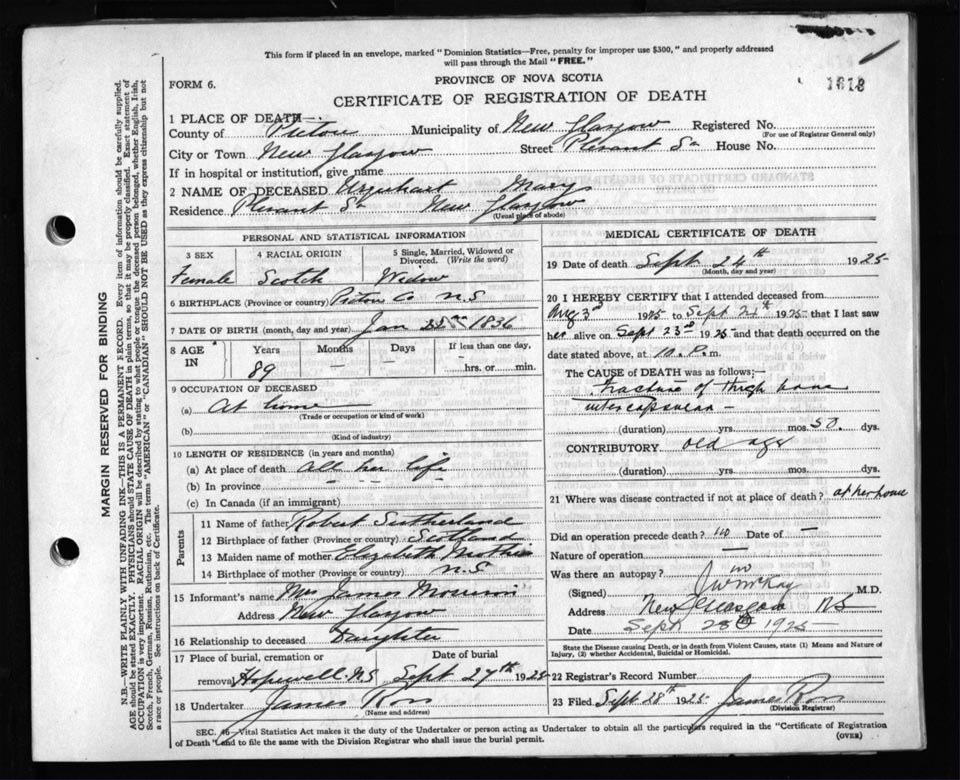 This form if placed in an envelope, marked "Dominion Statistics—Free, penalty for improper use $300," and properly addressed
will pass through the Mail "FREE."
PROVINCE OF NOVA SCOTIA
FORM 6.
1618
CERTIFICATE OF REGISTRATION OF DEATH
1 PLACE OF DEATH—
County of Pictou Municipality of New Glasgow Registered No.
(For use of Registrar General only)
City or Town New Glasgow Street Plesant St House No.
If in hospital or institution, give name
2 NAME OF DECEASED Urquhart Mary
Residence Plesant St New Glasgow
(Usual place of abode)
PERSONAL AND STATISTICAL INFORMATION
3 SEX 4 RACIAL ORIGIN 5 Single, Married, Widowed or Divorced. (Write the word)
Female Scotch Widow
6 BIRTHPLACE (Province or country) Pictou Co N.S
7 DATE OF BIRTH (month, day and year) Jan 1836
8 AGE IN Years Months Days If less than one day,
89 — — hrs. or min.
9 OCCUPATION OF DECEASED
(a) At home
(Trade or occupation or kind of work)
(b)
(Kind of industry)
10 LENGTH OF RESIDENCE (in years and months)
(a) At place of death all her life
(b) In province — — —
(c) In Canada (if an immigrant)
Parents
11 Name of father Robert Sutherland
12 Birthplace of father (Province or country) Scotland
13 Maiden name of mother Elizabeth
14 Birthplace of mother (Province or country) N.S
15 Informant's name Mrs James Morrison
Address New Glasgow
16 Relationship to deceased Daughter
17 Place of burial, cremation or Date of burial
removal Hopewell N.S Sept 27th 1925
18 Undertaker James Ross
(Name and address)
MEDICAL CERTIFICATE OF DEATH
19 Date of death Sept 24th 1925
(Month, day and year)
20 I HEREBY CERTIFY that I attended deceased from
Aug 3rd 1925 to Sept 24th 1925 that I last saw
her alive on Sept 23rd 1925 and that death occurred on the
date stated above, at 10.P. m.
The CAUSE of DEATH was as follows;—
fracture of thigh bone
intercapsular —
(duration) yrs. mos. 50. dys.
CONTRIBUTORY old age
(duration) yrs. mos. dys.
21 Where was disease contracted if not at place of death? at her home
Did an operation precede death? no Date of —
Nature of operation —
Was there an autopsy? no
(Signed) J W McKay M.D.
Address New Glasgow NS
Date Sept 28th 1925
State the Disease causing Death, or in death from Violent Causes, state (1) Means and Nature of
Injury, (2) whether Accidental, Suicidal or Homicidal.
22 Registrar's Record Number
23 Filed Sept 28th 1925 James Ross
(Division Registrar)
SEC. 46—Vital Statistics Act makes it the duty of the Undertaker or person acting as Undertaker to obtain all the particulars required in the "Certificate of Registration
of Death" and to file the same with the Division Registrar who shall issue the burial permit.
(OVER)
MARGIN RESERVED FOR BINDING
N.B.—WRITE PLAINLY WITH UNFADING INK—THIS IS A PERMANENT RECORD. Every item of information should be carefully supplied.
AGE should be stated EXACTLY. PHYSICIANS should STATE CAUSE OF DEATH in plain terms, so that it may be properly classified. Exact statement of
OCCUPATION is very important. RACIAL ORIGIN will be described by stating to what people or tongue the deceased person belonged, whether English, Irish,
Scotch, French, German, Russian, Ruthenian, etc. The terms "AMERICAN" or "CANADIAN" SHOULD NOT BE USED as they express citizenship but not
a race or people. See instructions on back of Certificate.